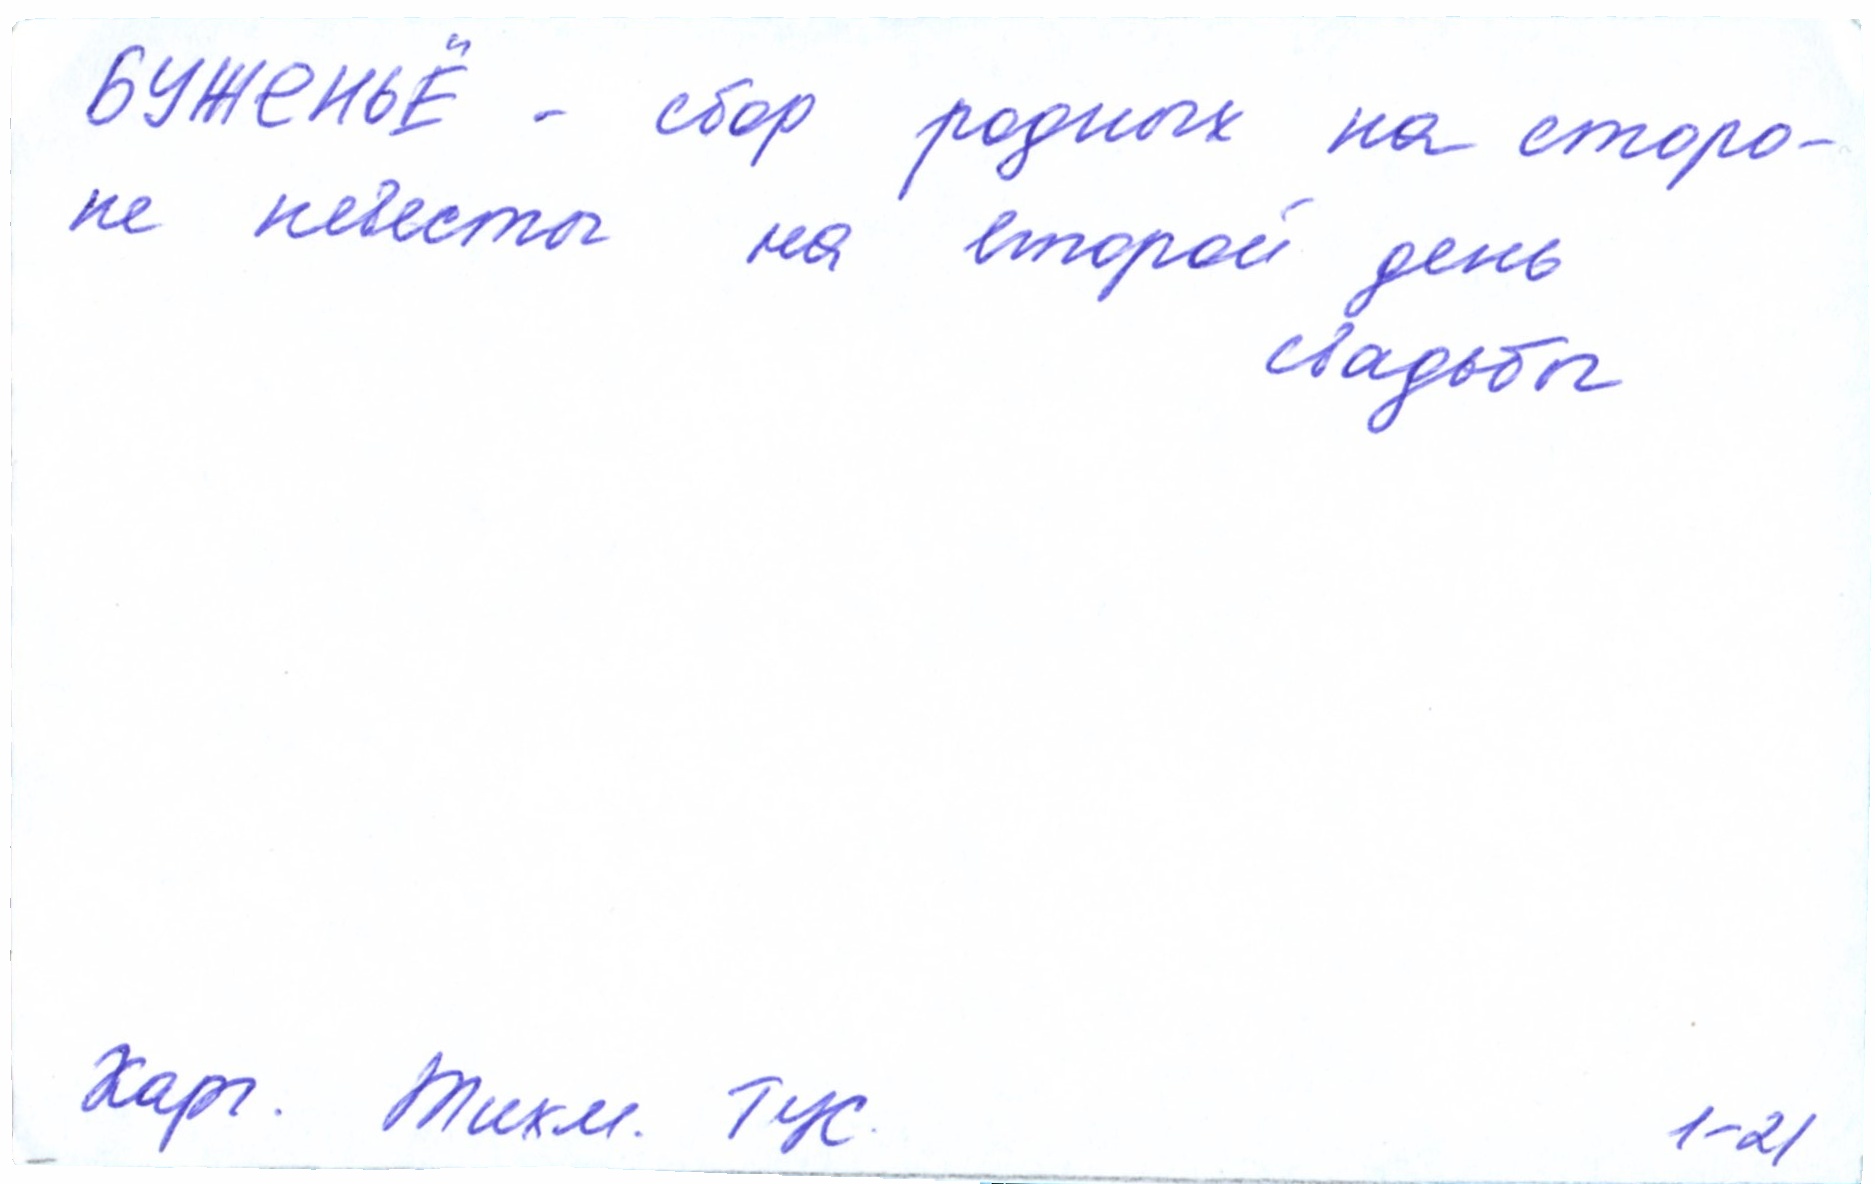 БУЖЕНЬЁ - сбор родных на сторо-
не невесты на второй день
свадьбы
Хар. Тихм. Тук. 1-21